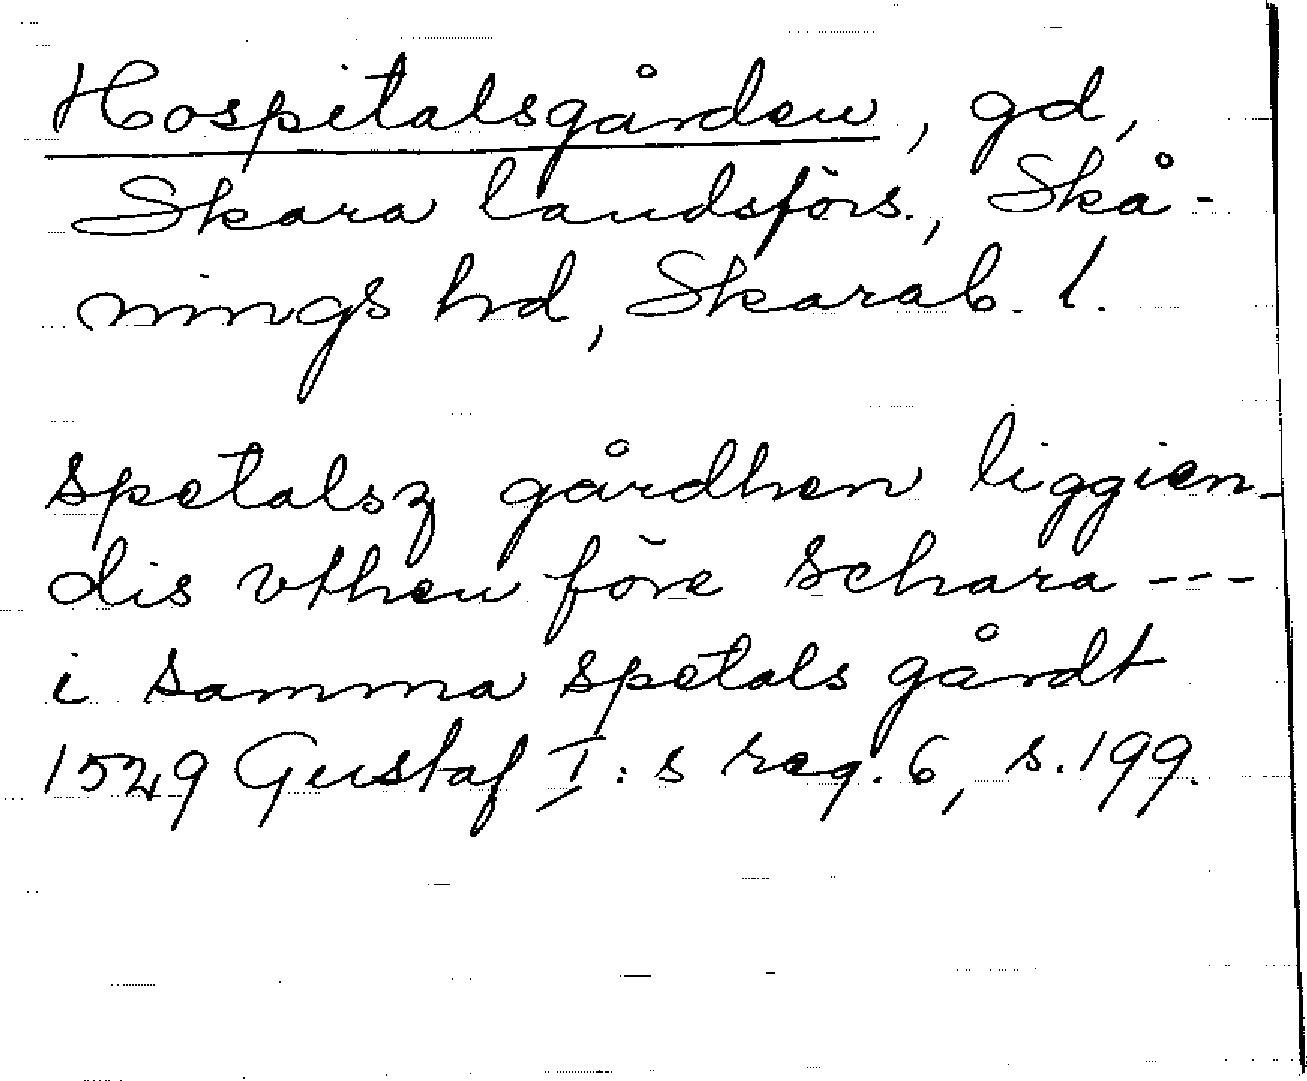 Hospitalsgården, gd,
Skara landsförs., Skå-
nings hd, Skarab. l.
spetalsz gårdhen liggien-
dis vthen före Schara ---
i samma spetals gårdt
1529 Gustaf I:s reg. 6, s. 199.